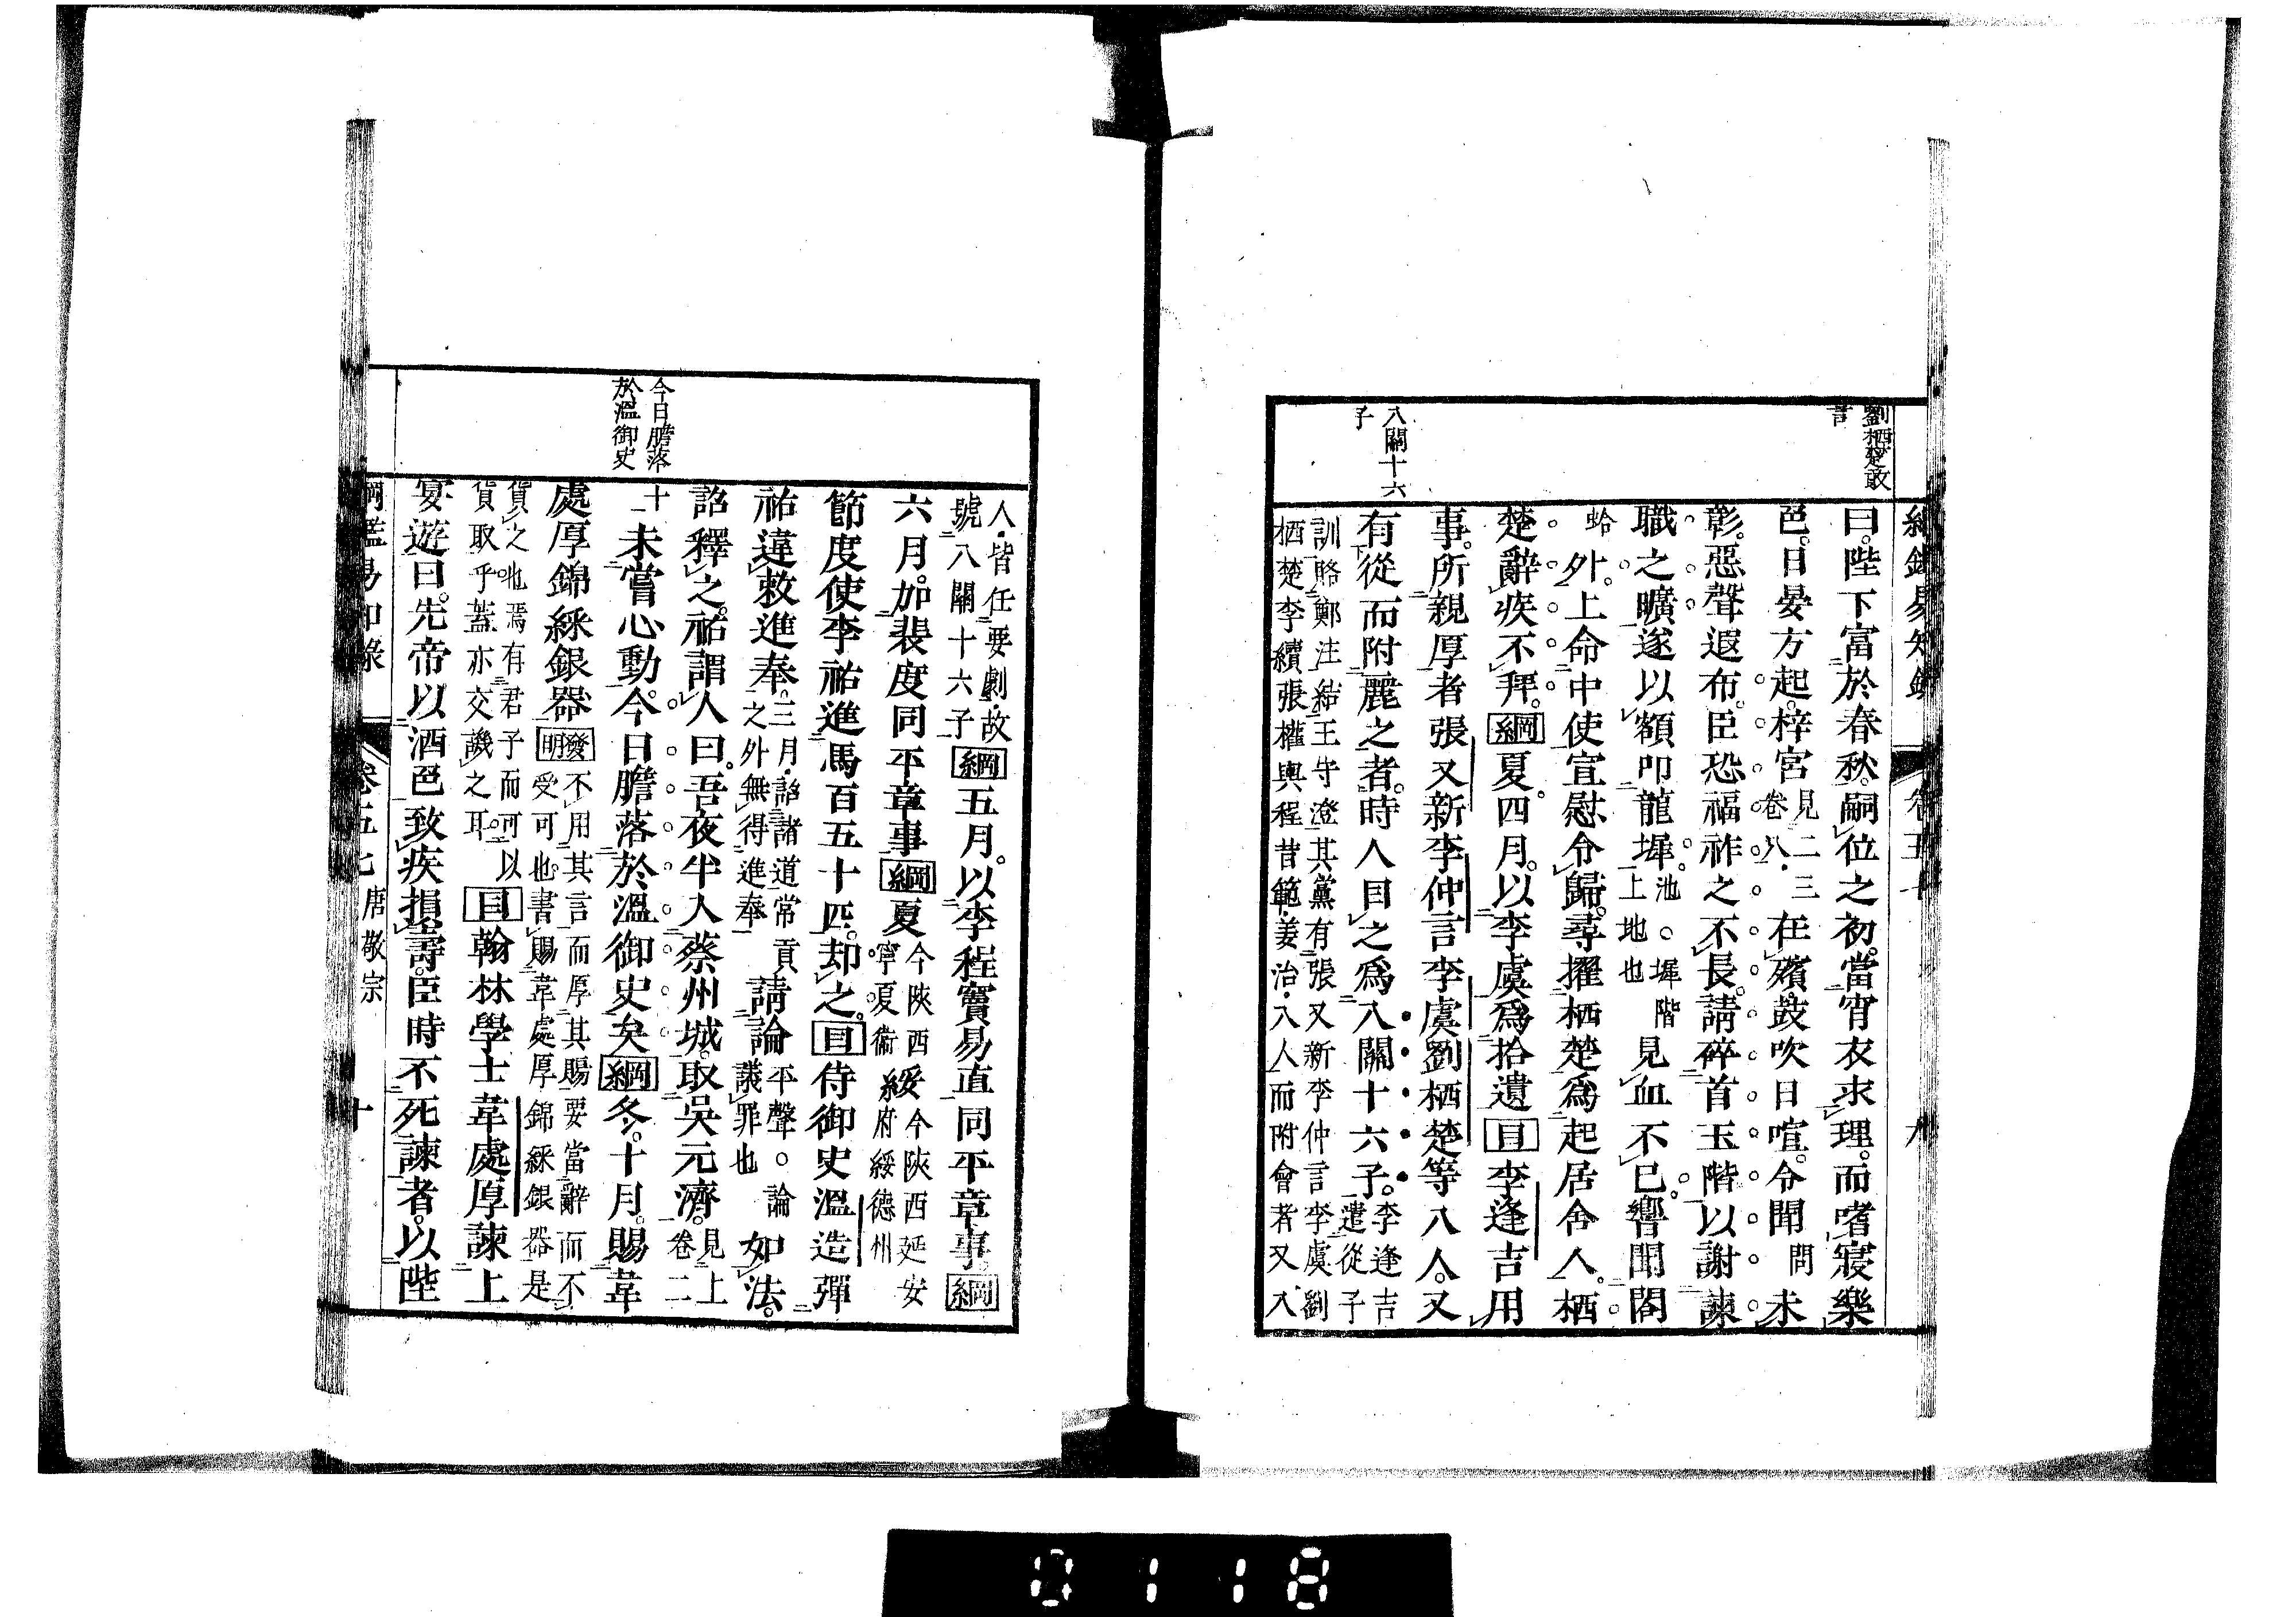 綱鑑易知錄 卷五十七 九
劉栖楚敢
言
八關十六
子
曰。陛下富於春秋。嗣位之初。當宵衣求理。而嗜寢樂
色。日晏方起。梓宮見二三卷八在殯。鼓吹日喧。令聞間未
彰。惡聲遐布。臣恐福祚之不長。請碎首玉階以謝諫
職之曠。遂以額叩龍墀。池○墀階上地也見血不已。響聞閤
蛤外。上命中使宣慰令歸。尋擢栖楚爲起居舍人。栖
楚辭疾不拜。綱夏四月。以李虞爲拾遺目李逢吉用
事。所親厚者張又新李仲言李虞劉栖楚等八人。又
有從而附麗之者。時人目之爲八關十六子。李逢吉遣從子
訓賂鄭注結王守澄其黨有張又新李仲言李虞劉
栖楚李續張權輿程昔範姜治八人而附會者又八
今日膽落
於溫御史
人皆任要劇故
號八關十六子綱五月。以李程竇易直同平章事。綱
六月。加裴度同平章事綱夏今陝西寧夏衞綏今陝西延安府綏德州
節度使李祐進馬百五十匹。却之。目侍御史溫造彈
祐違敕進奉。三月詔諸道常貢之外無得進奉請論平聲○論議罪也如法。
詔釋之。祐謂人曰。吾夜半入蔡州城。取吳元濟。見上卷二
十一未嘗心動。今日膽落於溫御史矣綱冬。十月。賜韋
處厚錦綵銀器發明不用其言而厚其賜要當辭而不
受可也書賜韋處厚錦綵銀器是
貨之也焉有君子而可以
貨取乎蓋亦交譏之耳目翰林學士韋處厚諫上
宴遊曰。先帝以酒色致疾損壽。臣時不死諫者。以陛
綱鑑易知錄 卷五七 唐敬宗 十
0118